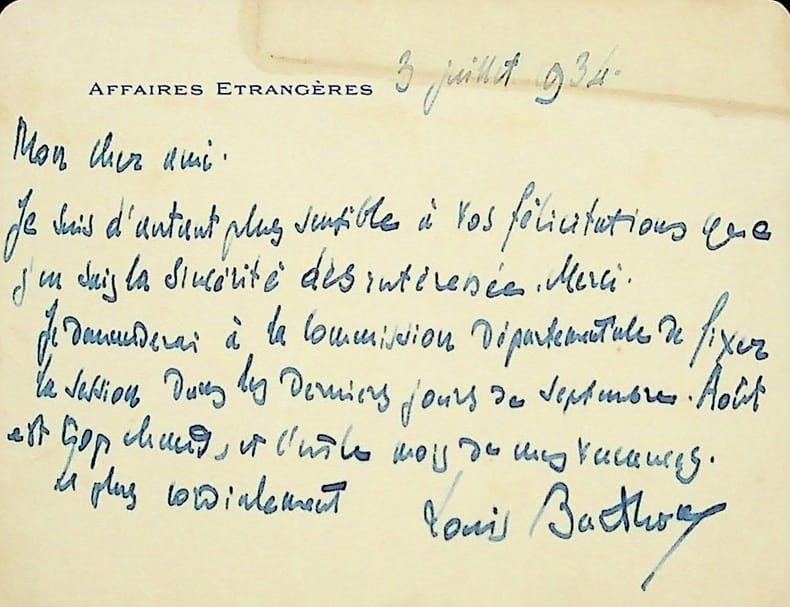 AFFAIRES ETRANGÈRES 3 juillet 934.
Mon cher ami.
Je suis d'autant plus sensible à vos félicitations que
j'en sais la sincérité désintéressée. Merci.
Je demanderai à la Commission Départementale de fixer
la session dans les derniers jours de septembre. Août
est trop chaud, et c'est le mois de mes vacances.
et plus cordialement
Louis Barthou